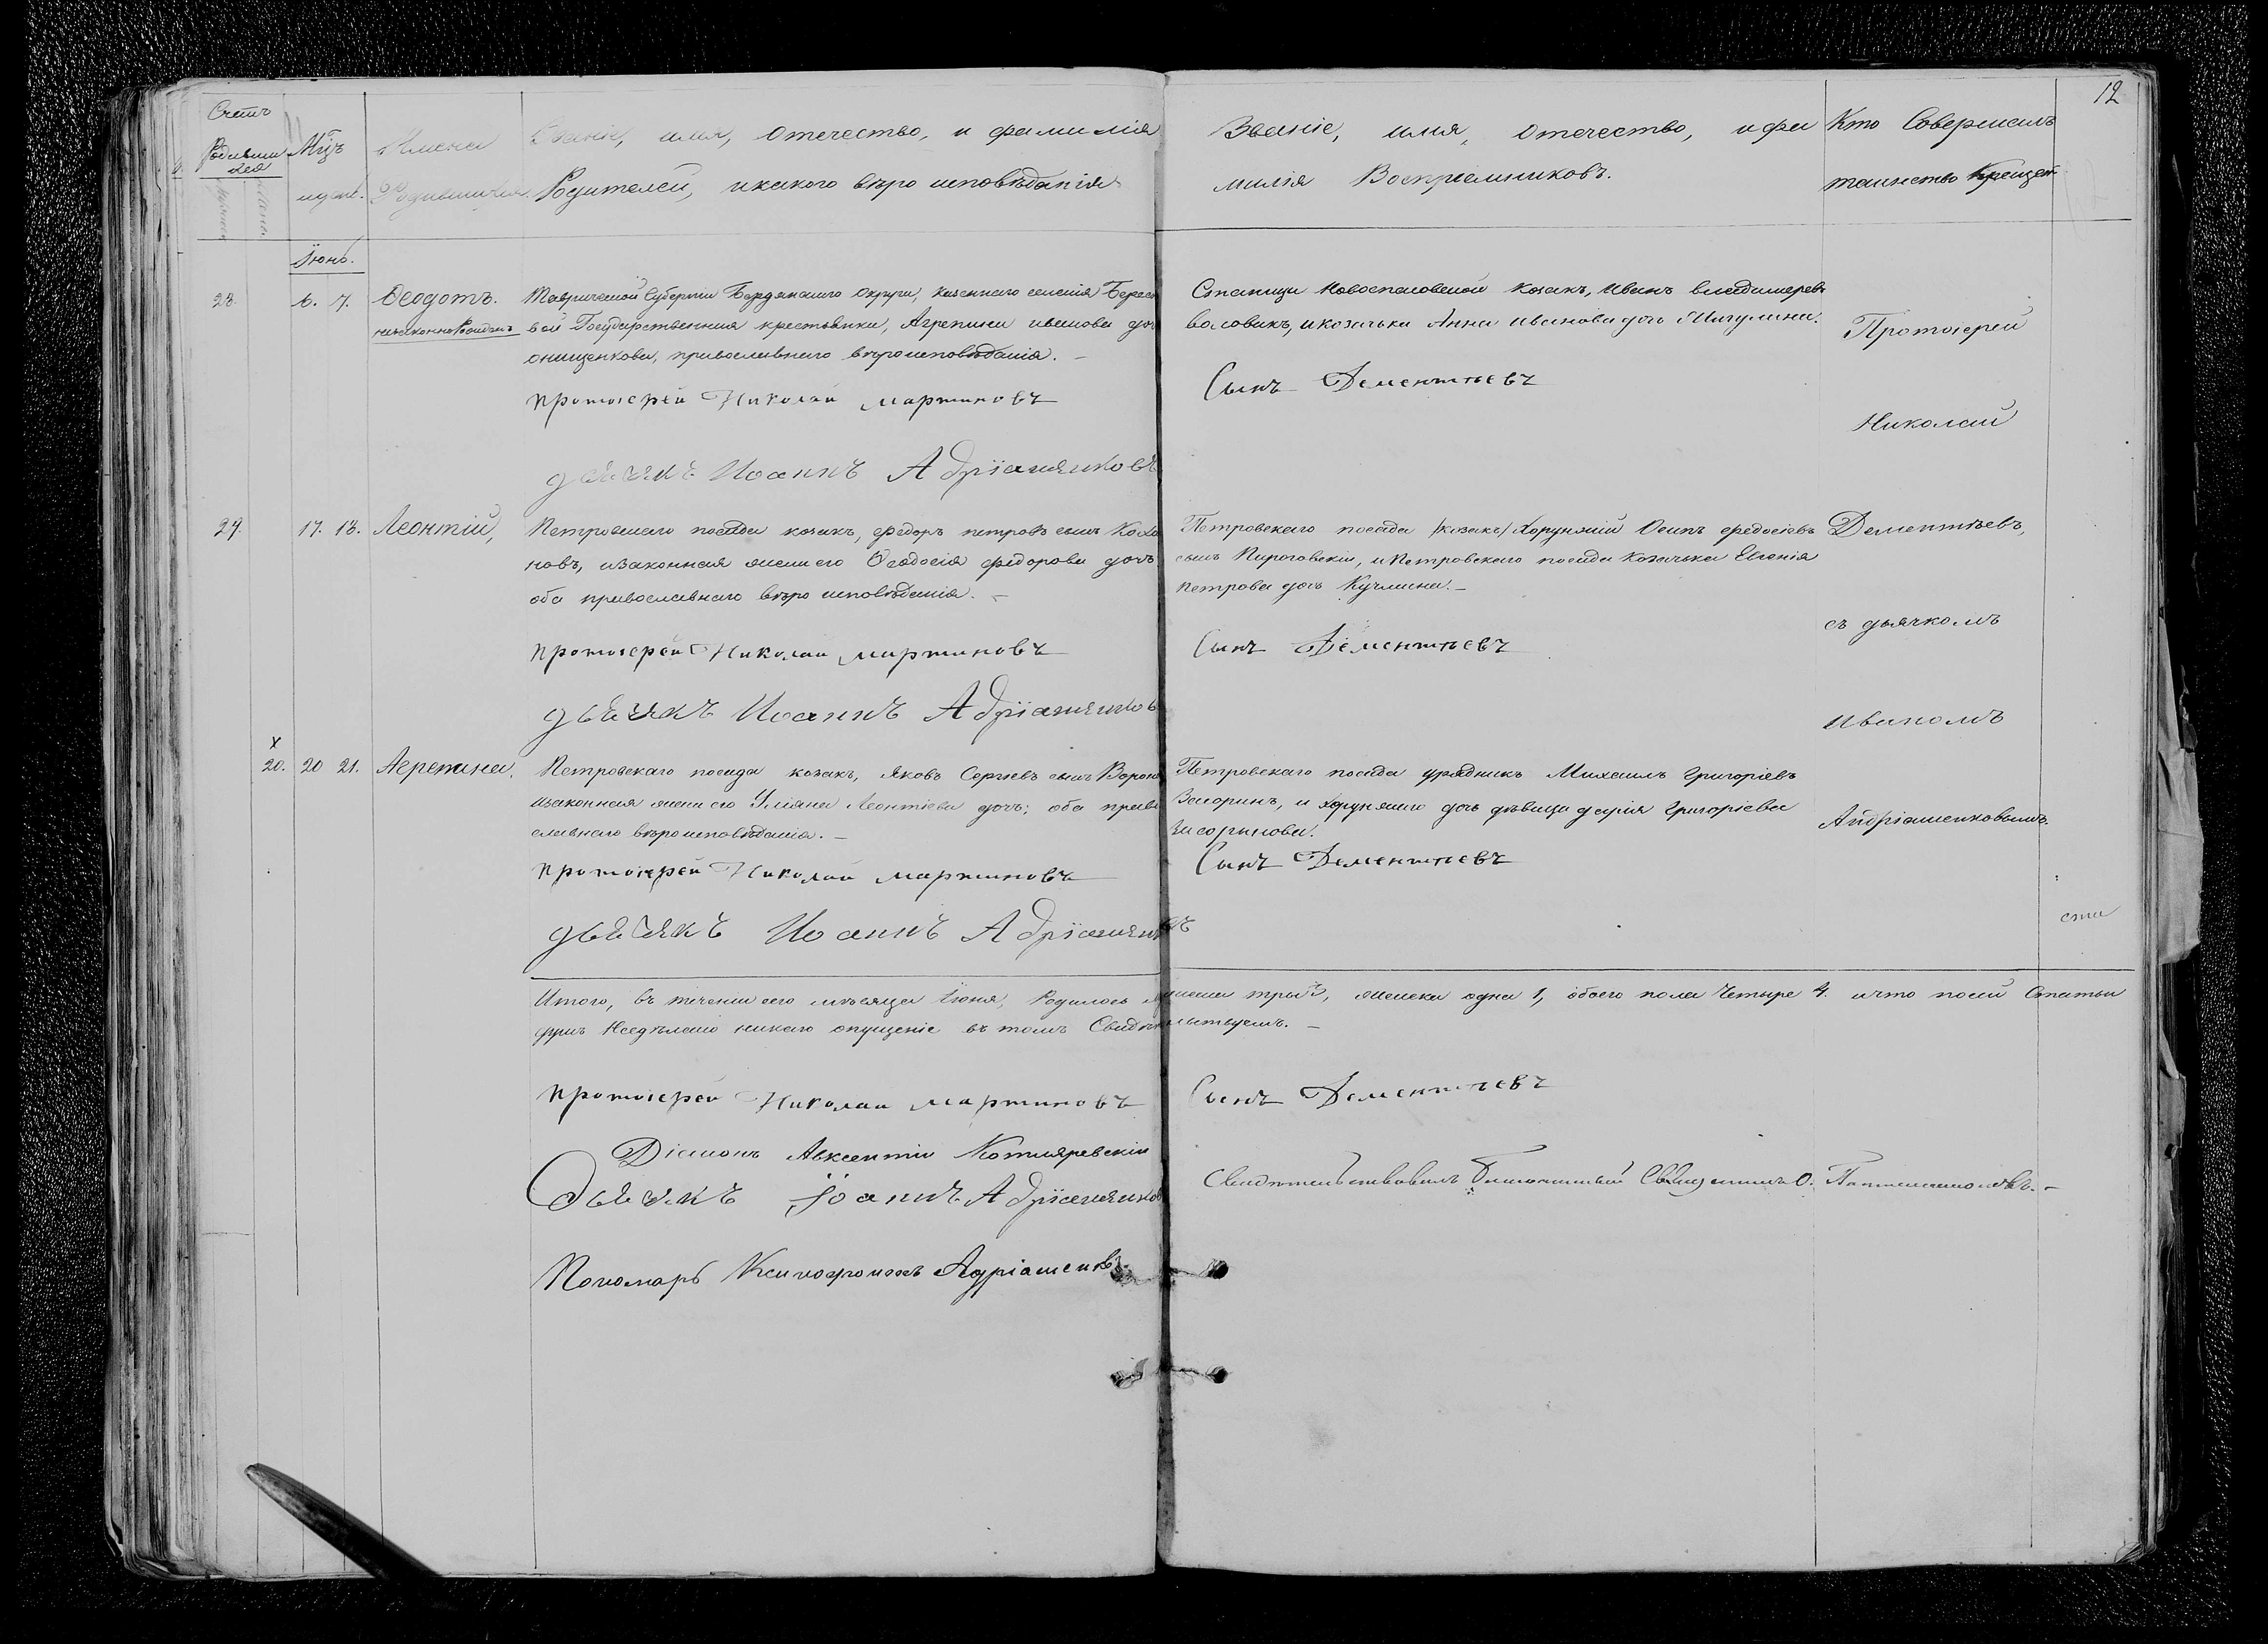 12
Счетъ
Родивши
хся
Мцъ
и дней.
Имена
Родившихся.
Званіе, имя, отечество, и фамилія
Родителей, и какого вѣро исповѣданія
Званіе, имя, отечество, и фа
милія Воспріемниковъ.
Кто Совершалъ
таинство Крещен.
Іюнь.
28. 6. 7. Ѳеодотъ.
незаконнорожденъ
Таврической Губерніи Бердянскаго округа, казеннаго селенія Бересто
вой Государственная крестьянка, Агрепина иванова доч
онищенкова, православнаго вѣроисповѣданія. –
протоіерей Николай мартиновъ
дьячекъ Иоаннъ Адріашенковъ
Станицы Новоспасовской козакъ, Иванъ владимеровъ
воловикъ, и козачька Анна иванова дочь Мигулина.
Сынъ Дементьевъ
29. 17. 18. Леонтій,
Петровскаго посада козакъ, федоръ петровъ сынъ Коха
новъ, и законная жена его Ѳеодосія федорова дочь
оба православнаго вѣро исповѣданія. –
протоіерей Николай мартиновъ
дьячекъ Иоаннъ Адріашенков
Петровскаго посада /козакъ/ Хорунжій Осипъ федосіевъ
сынъ Пироговскій, и Петровскаго посада козачька Евгенія
петрова дочь Кучмина. –
Сынъ Дементьевъ
20. 20 21. Агрепина.
Петровскаго посада козакъ, Яковъ Сергѣевъ сынъ Ворон
и законная жена его Уліяна Леонтіева дочь; оба право
славнаго вѣроисповѣданія. –
протоіерей Николай мартиновъ
дьячекъ Иоаннъ Адріашенковъ
Петровскаго посада урядникъ Михаилъ Григоріевъ
Засоринъ, и хорунжаго дочь дѣвица дарія Григоріева
Засоринова.
Сынъ Дементьевъ
Протоіерей
Николай
Дементьевъ,
съ дьячкомъ
иваномъ
Андріашенковымъ.
ста
Итого, въ теченіи сего мѣсяца Іюня, Родилось мужеска три 3, женска одна 1, обоего пола Четыре 4. и что посей Статьи
душъ Несдѣлано никаго опущеніе въ томъ Свидѣтельствуемъ. –
протоіерей Николай мартиновъ Сынъ Дементьевъ
Діаконъ Авксентій Котляревскій
Дьячекъ Іоаннъ Адріашенков
Пономарь Ксинофонтъ Адріашенко
Свидѣтельствовалъ Благочинный Священникъ